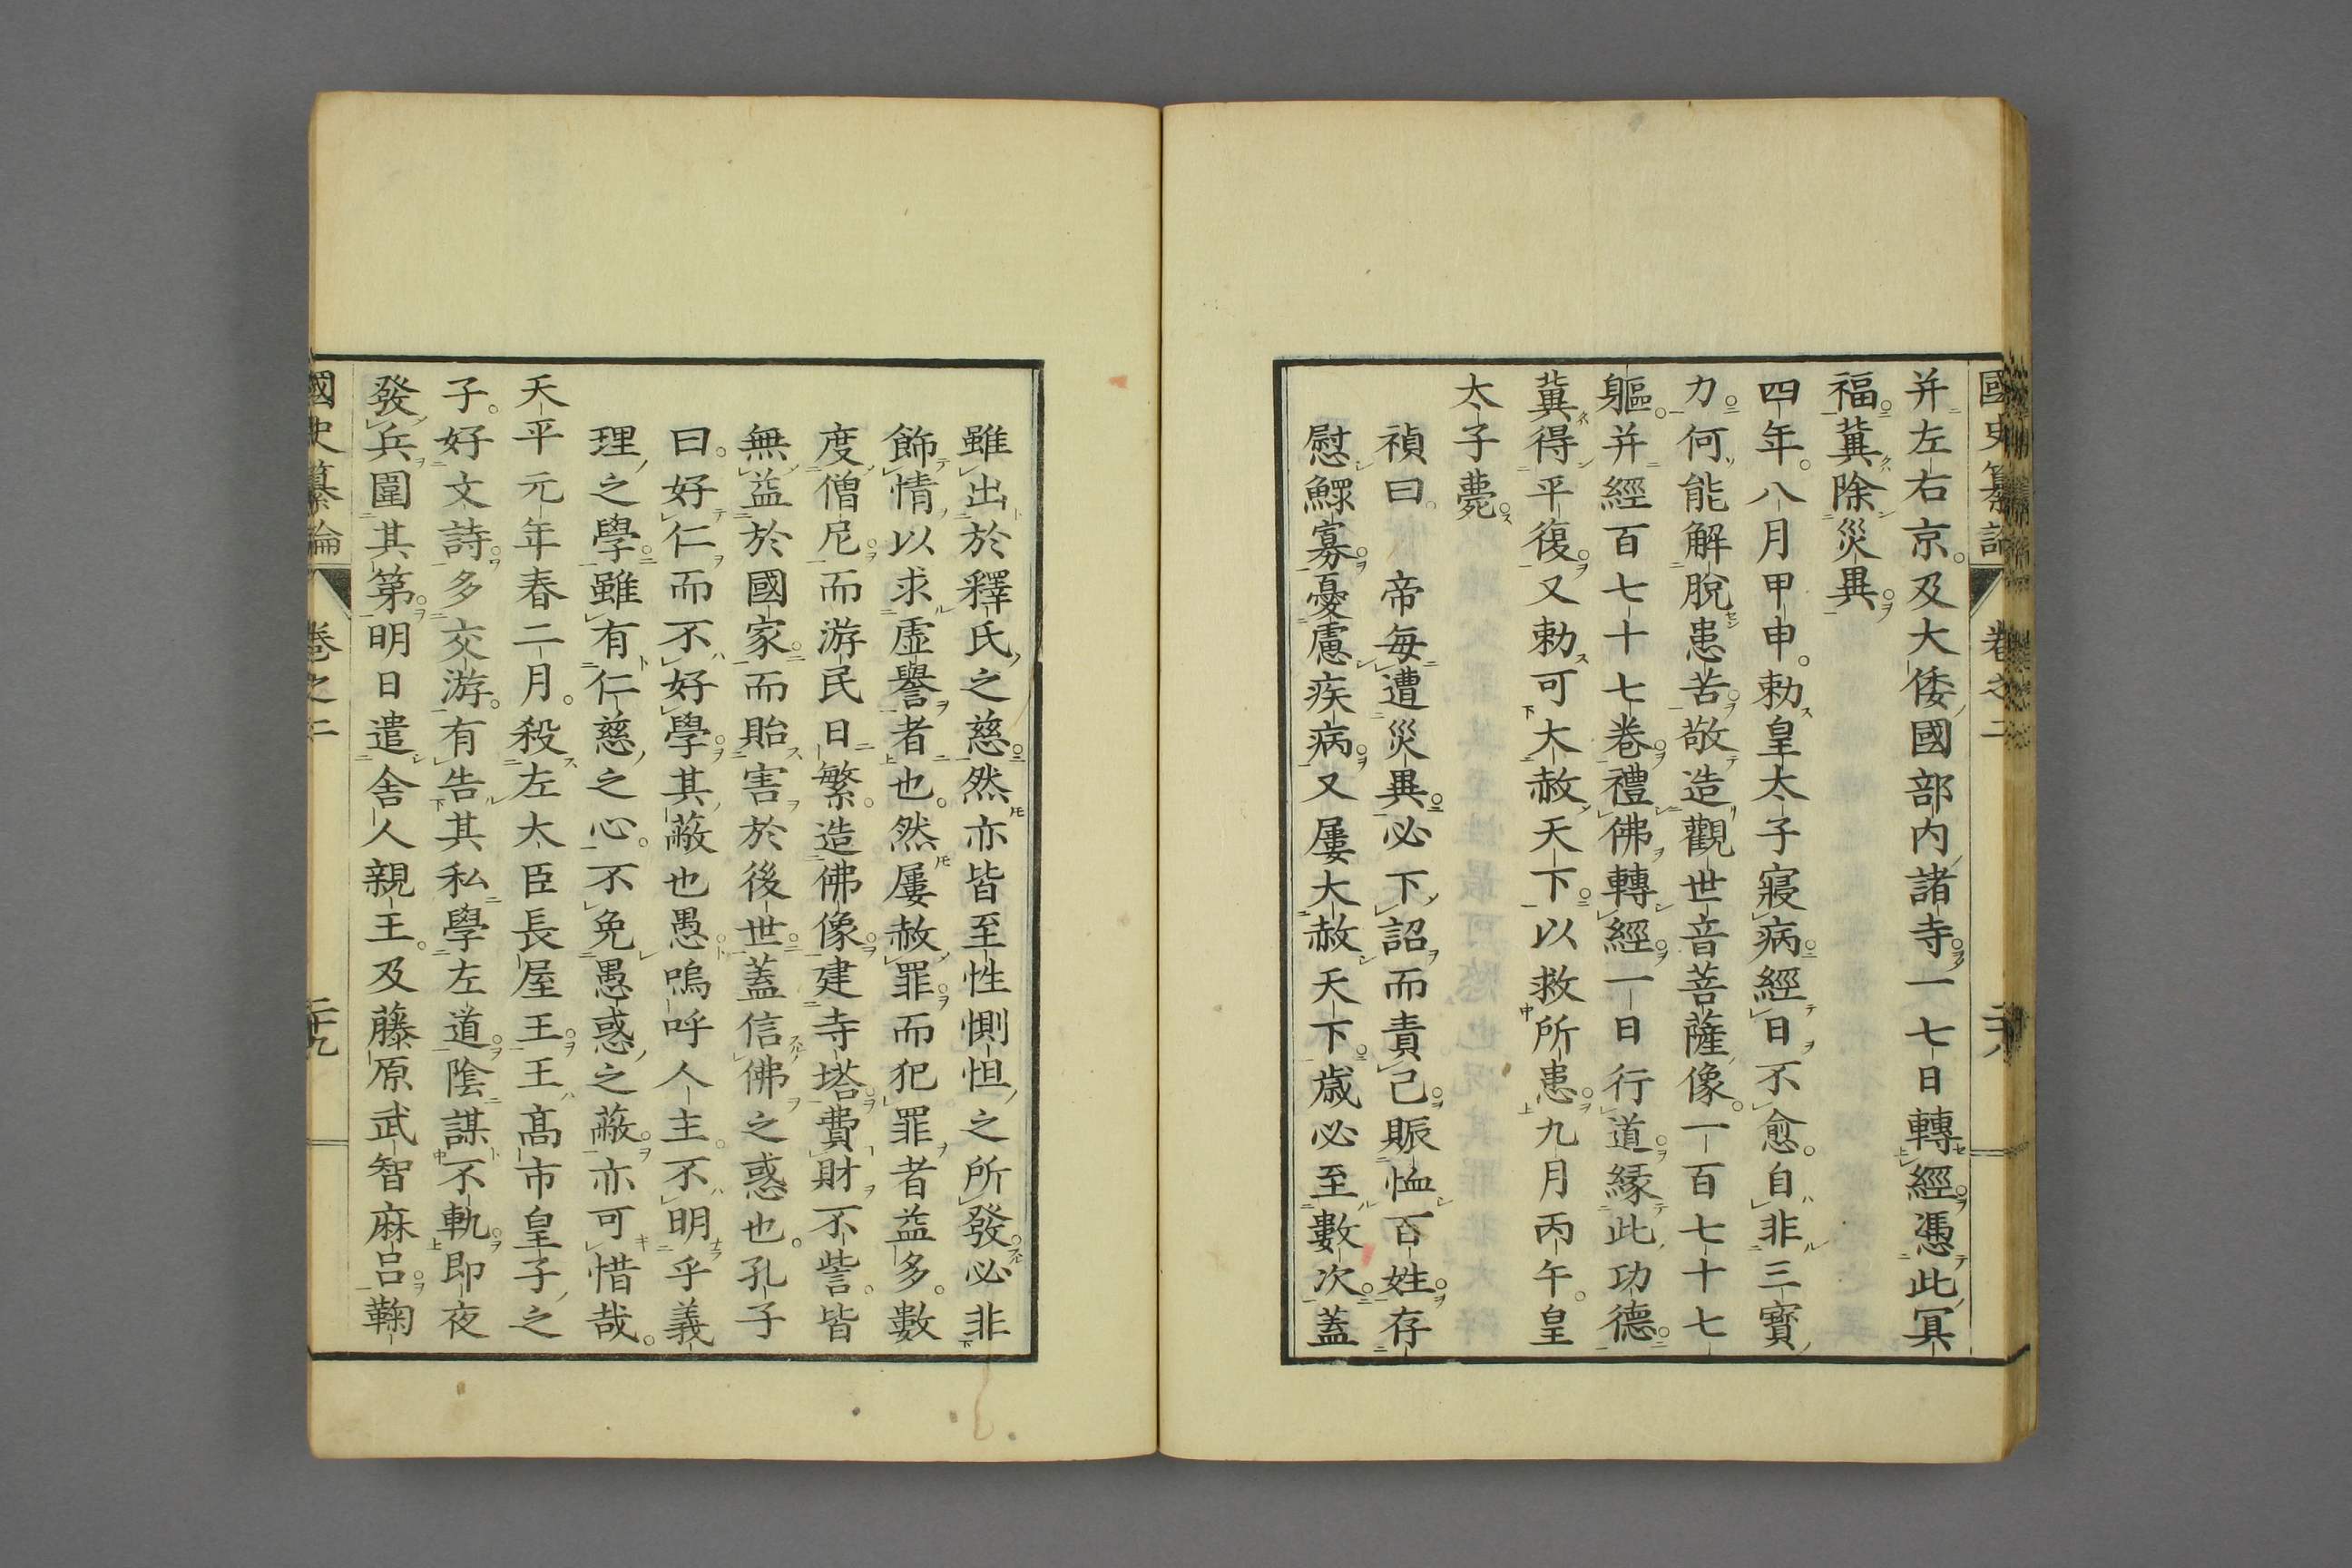 國史纂論 卷之二 二十八
并左右京及大倭國部内諸寺一七日轉經憑此冥
福冀除災異
四年八月甲申勅皇太子寢病經日不愈自非三寶
力何能解脫患苦敬造觀世音菩薩像一百七十七
軀并經百七十七卷禮佛轉經一日行道緣此功德
冀得平復又勅可大赦天下以救所患九月丙午皇
太子薨
禎曰 帝每遭災異必下詔而責己賑恤百姓存
慰鰥寡憂慮疾病又屢大赦天下歲必至數次蓋
雖出於釋氏之慈然亦皆至性惻怛之所發必非
飾情以求虛譽者也然屢赦罪而犯罪者益多數
度僧尼而游民日繁造佛像建寺塔費財不訾皆
無益於國家而貽害於後世蓋信佛之惑也孔子
曰好仁而不好學其蔽也愚嗚呼人主不明乎義
理之學雖有仁慈之心不免愚惑之蔽亦可惜哉
天平元年春二月殺左大臣長屋王王高市皇子之
子好文詩多交游有告其私學左道陰謀不軌即夜
發兵圍其第明日遣舍人親王及藤原武智麻呂鞠
國史纂論 卷之二 二十九